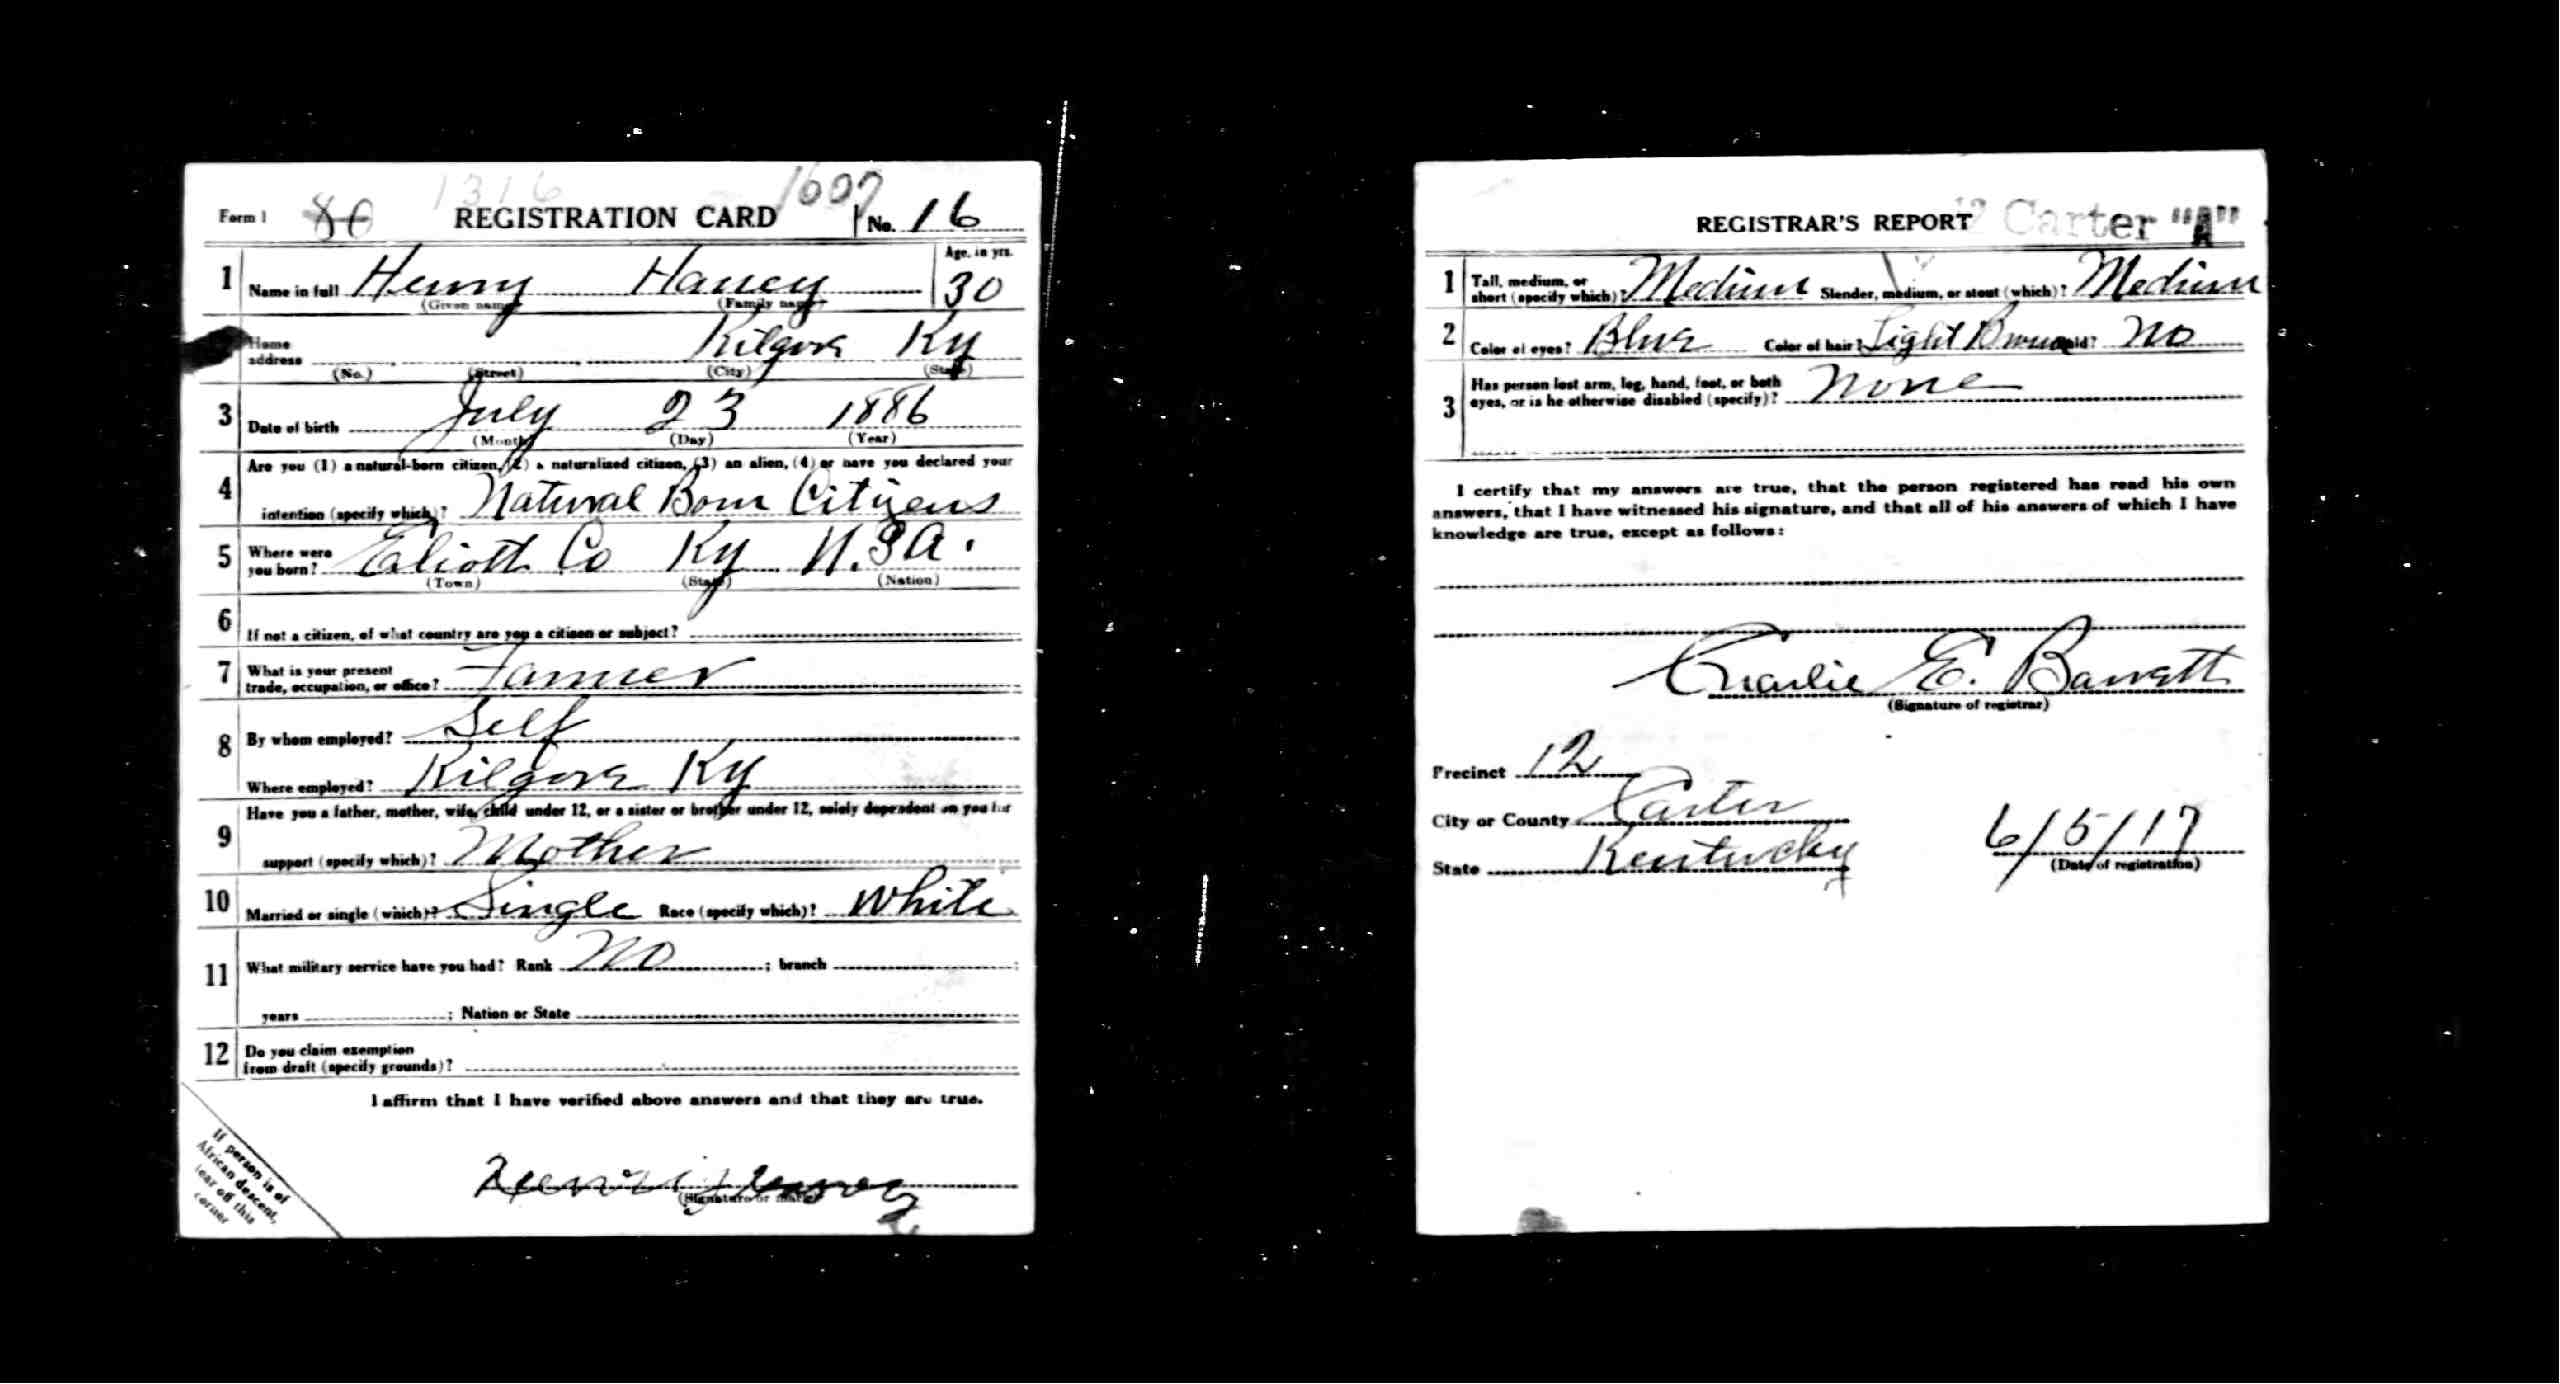 1316 1607
Form 1 80 REGISTRATION CARD No. 16
1 Name in full Henry Haney Age, in yrs. 30
(Given name) (Family name)
Home address Kilgore Ky
(No.) (Street) (City) (State)
3 Date of birth July 23 1886
(Month) (Day) (Year)
4 Are you (1) a natural-born citizen, (2) a naturalized citizen, (3) an alien, (4) or have you declared your
intention (specify which)? Natural Born Citizens
5 Where were you born? Eliott Co Ky U.S.A.
(Town) (State) (Nation)
6 If not a citizen, of what country are you a citizen or subject?
7 What is your present trade, occupation, or office? Farmer
8 By whom employed? Self
Where employed? Kilgore Ky
9 Have you a father, mother, wife, child under 12, or a sister or brother under 12, solely dependent on you for
support (specify which)? Mother
10 Married or single (which)? Single Race (specify which)? White
11 What military service have you had? Rank No ; branch ;
years ; Nation or State
12 Do you claim exemption
from draft (specify grounds)?
I affirm that I have verified above answers and that they are true.
(Signature or mark)
If person is of
African descent,
tear off this
corner
REGISTRAR'S REPORT 12 Carter "A"
1 Tall, medium, or short (specify which)? Medium Slender, medium, or stout (which)? Medium
2 Color of eyes? Blue Color of hair? Light Brown Bald? No
3 Has person lost arm, leg, hand, foot, or both
eyes, or is he otherwise disabled (specify)? None
I certify that my answers are true, that the person registered has read his own
answers, that I have witnessed his signature, and that all of his answers of which I have
knowledge are true, except as follows:
Charlie E. Barrett
(Signature of registrar)
Precinct 12
City or County Carter
State Kentucky 6/5/17
(Date of registration)